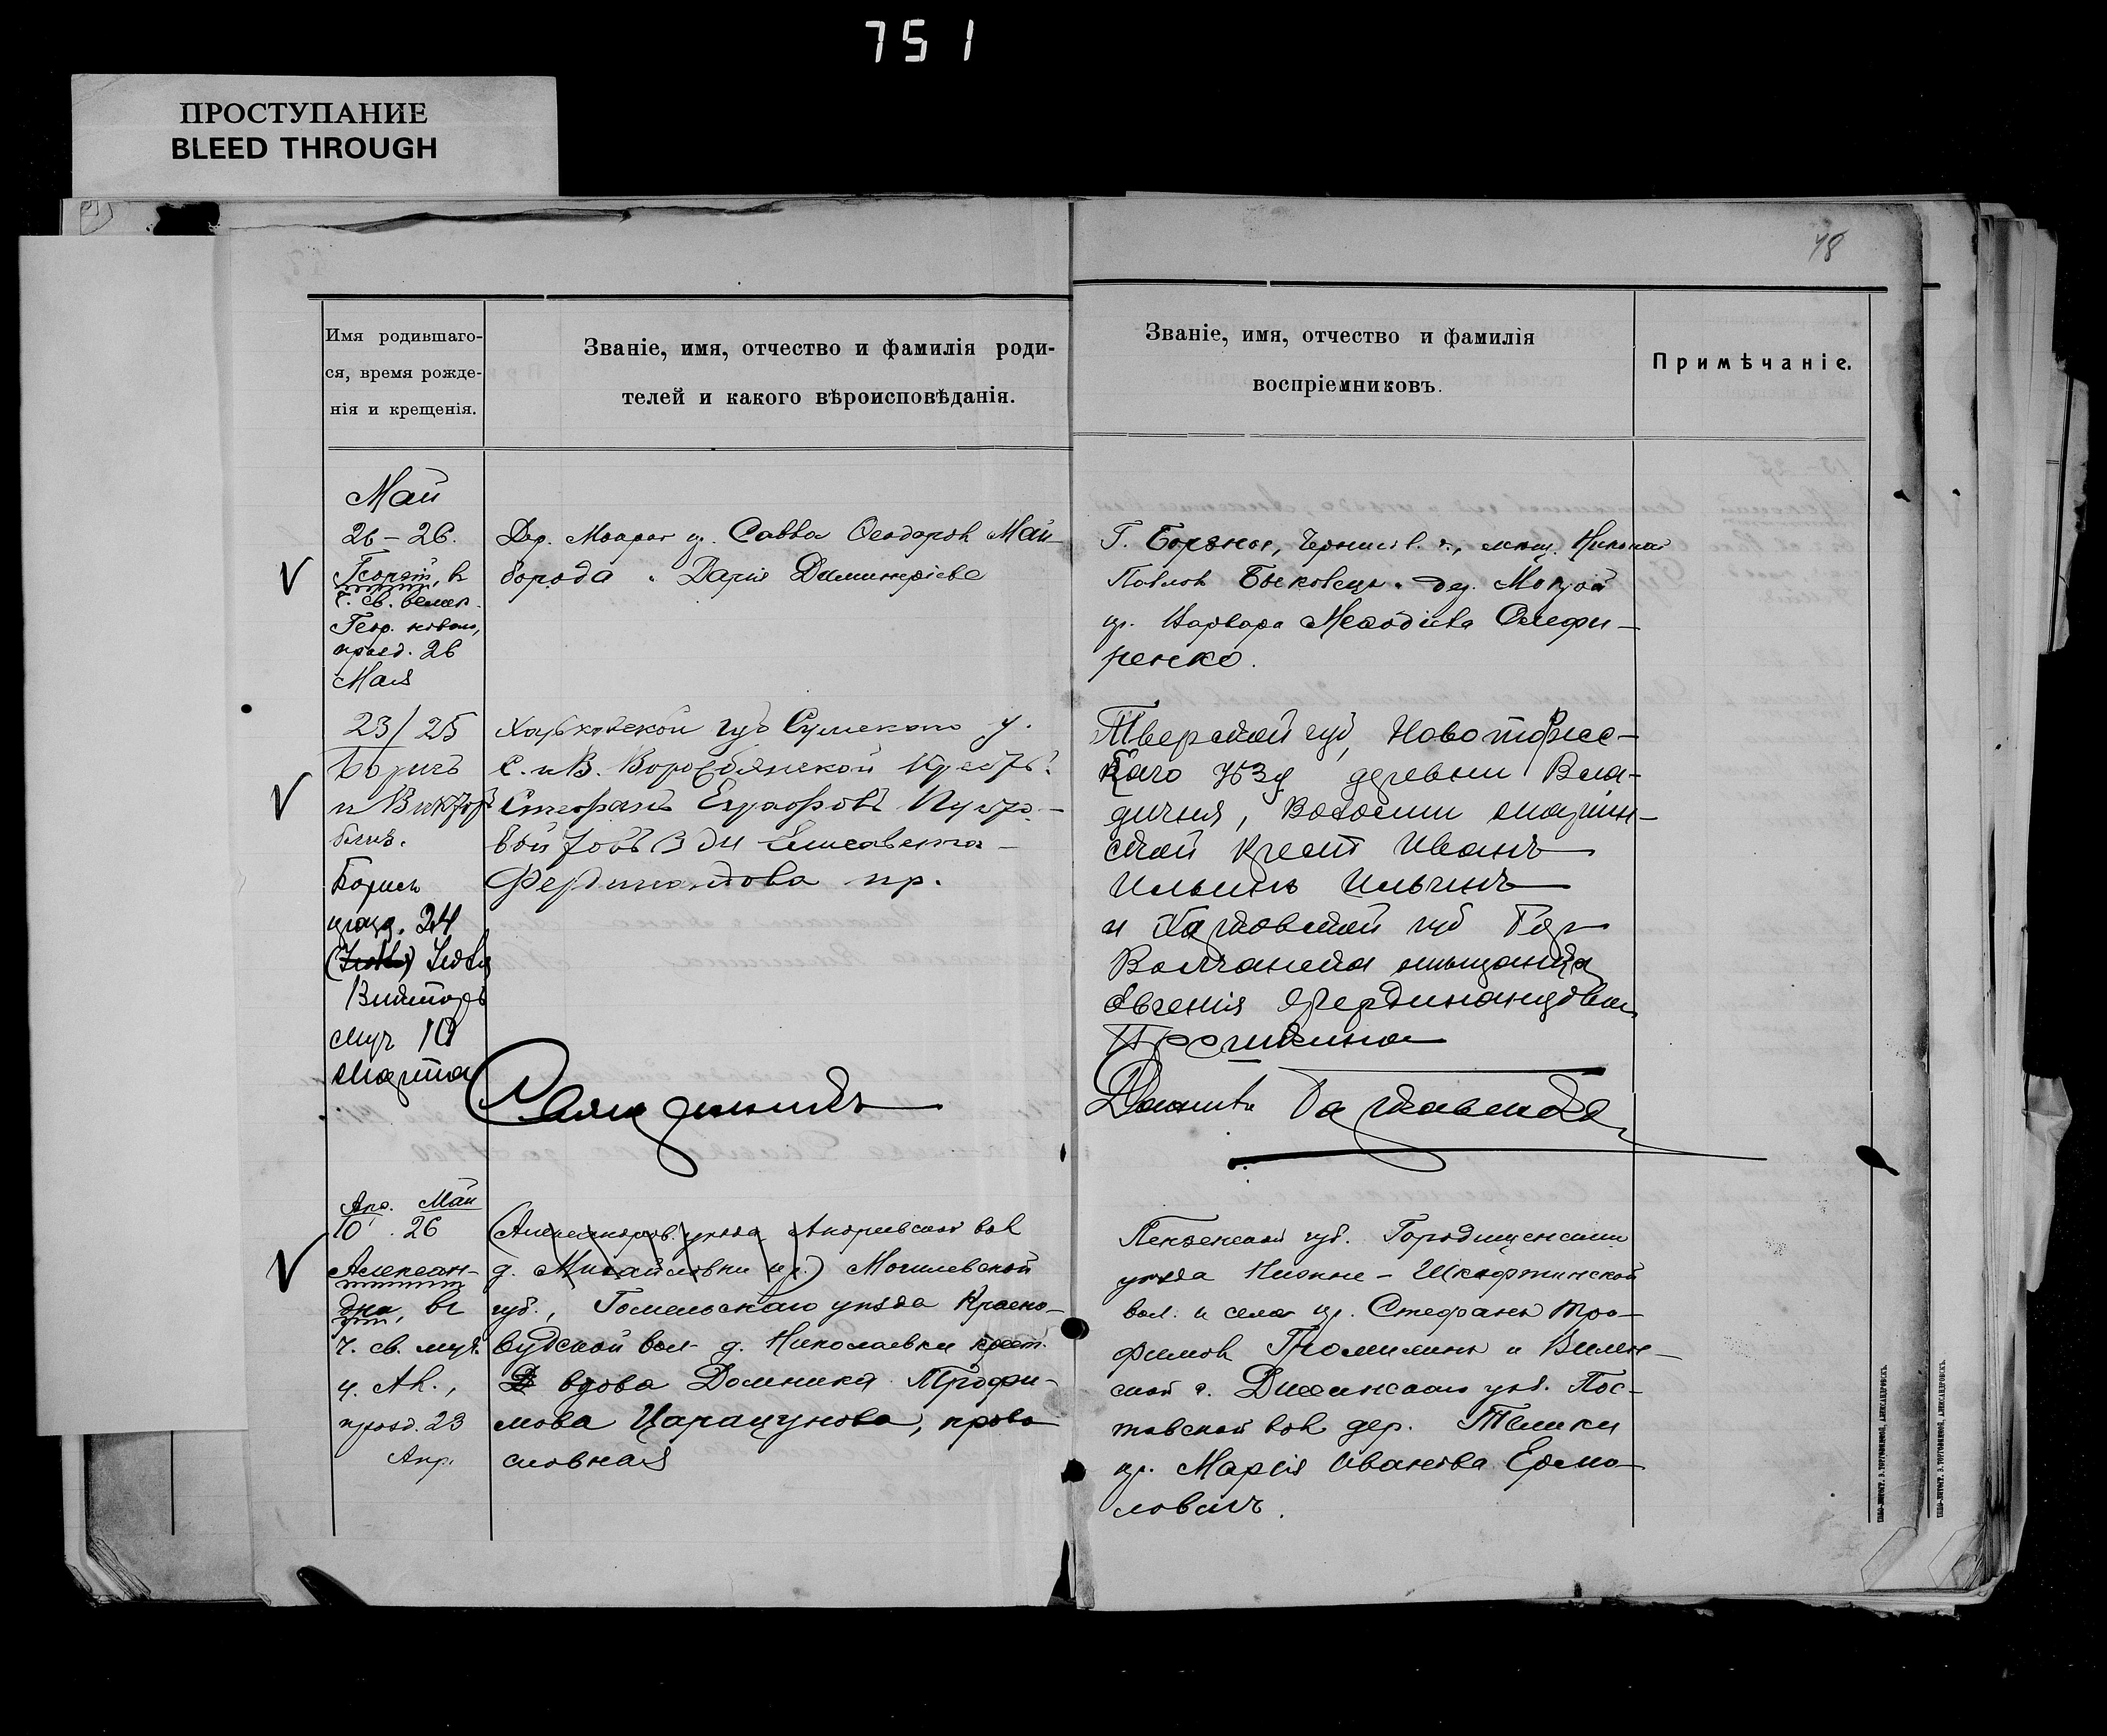 751
ПРОСТУПАНИЕ
BLEED THROUGH
78
Имя родившаго-
ся, время рожде-
нія и крещенія.
Званіе, имя, отчество и фамилія роди-
телей и какого вѣроисповѣданія.
Званіе, имя, отчество и фамилія
воспріемниковъ.
Примѣчаніе.
Май
26 – 26.
Георгій, в
ч. св. велик.
Геор. новаго,
празд. 26
Мая
Дер. Мокрой кр. Савва Ѳеодоровъ Май-
борода и Дарія Димитріева
Г. Борзны, Черниг. г., мѣщ. Николай
Павловъ Быковецъ и дер. Мокрой
кр. Варвара Меѳодіева Олефи-
ренко.
23/25
Борисъ
и Викторъ
близ.
Борисъ
празд. 24
Іюля
Викторъ
муч 10
марта
Харьковской губ Сумского у.
С. и В. Воробьянской Крестьв.
Стефанъ Евграфовъ
Елисавета
Фердинандова пр.
Тверской губ, Новоторжс-
каго уѣзд деревни Вла-
дичня, Волости марьин-
ской крест Иванъ
Ильинъ Ильинъ
и Харьковской губ Гор
Волчанска мѣщанка
Евгенія Фердинандовна
Апр. Май
10 . 26
Алексан-
дра, въ
ч. св. муч.
ц. Ал.,
празд. 23
Апр.
(Александров. уѣзда Андреевской вол
д. Михайловки кр.) Могилевской
губ., Гомельскаго уѣзда Красно-
будской вол. д. Николаевки крест.
вдова Домника Трофи-
мова Царапунова, право
славная
Пензенской губ. Городищенскаго
уѣзда Нижне – Шкафтинской
вол. и села кр. Стефанъ Тро-
фимовъ и Вилен-
ской г. Дисенскаго уѣз. Пос-
тавской вол дер.
кр. Марія Иванова Ермо-
ловичъ.
ТИПО-ЛИТОГР. Э. ТОРГОВИЦКОЙ, АЛЕКСАНДРОВСКЪ.
ТИПО-ЛИТОГР. Э. ТОРГОВИЦКОЙ, АЛЕКСАНДРОВСКЪ.